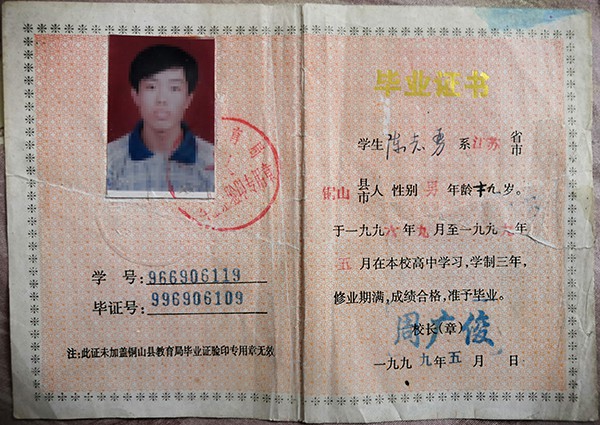 验印专用章
学 号: 966906119
毕证号: 996906109
注:此证未加盖铜山县教育局毕业证验印专用章无效
毕业证书
学生 陈志勇 系 江苏 省市
铜山 县市 人 性别 男 年龄 十九 岁。
于一九九六年九月至一九九九年
五月在本校高中学习,学制三年,
修业期满,成绩合格,准予毕业。
校长(章)
周广俊
一九九九年五月 日